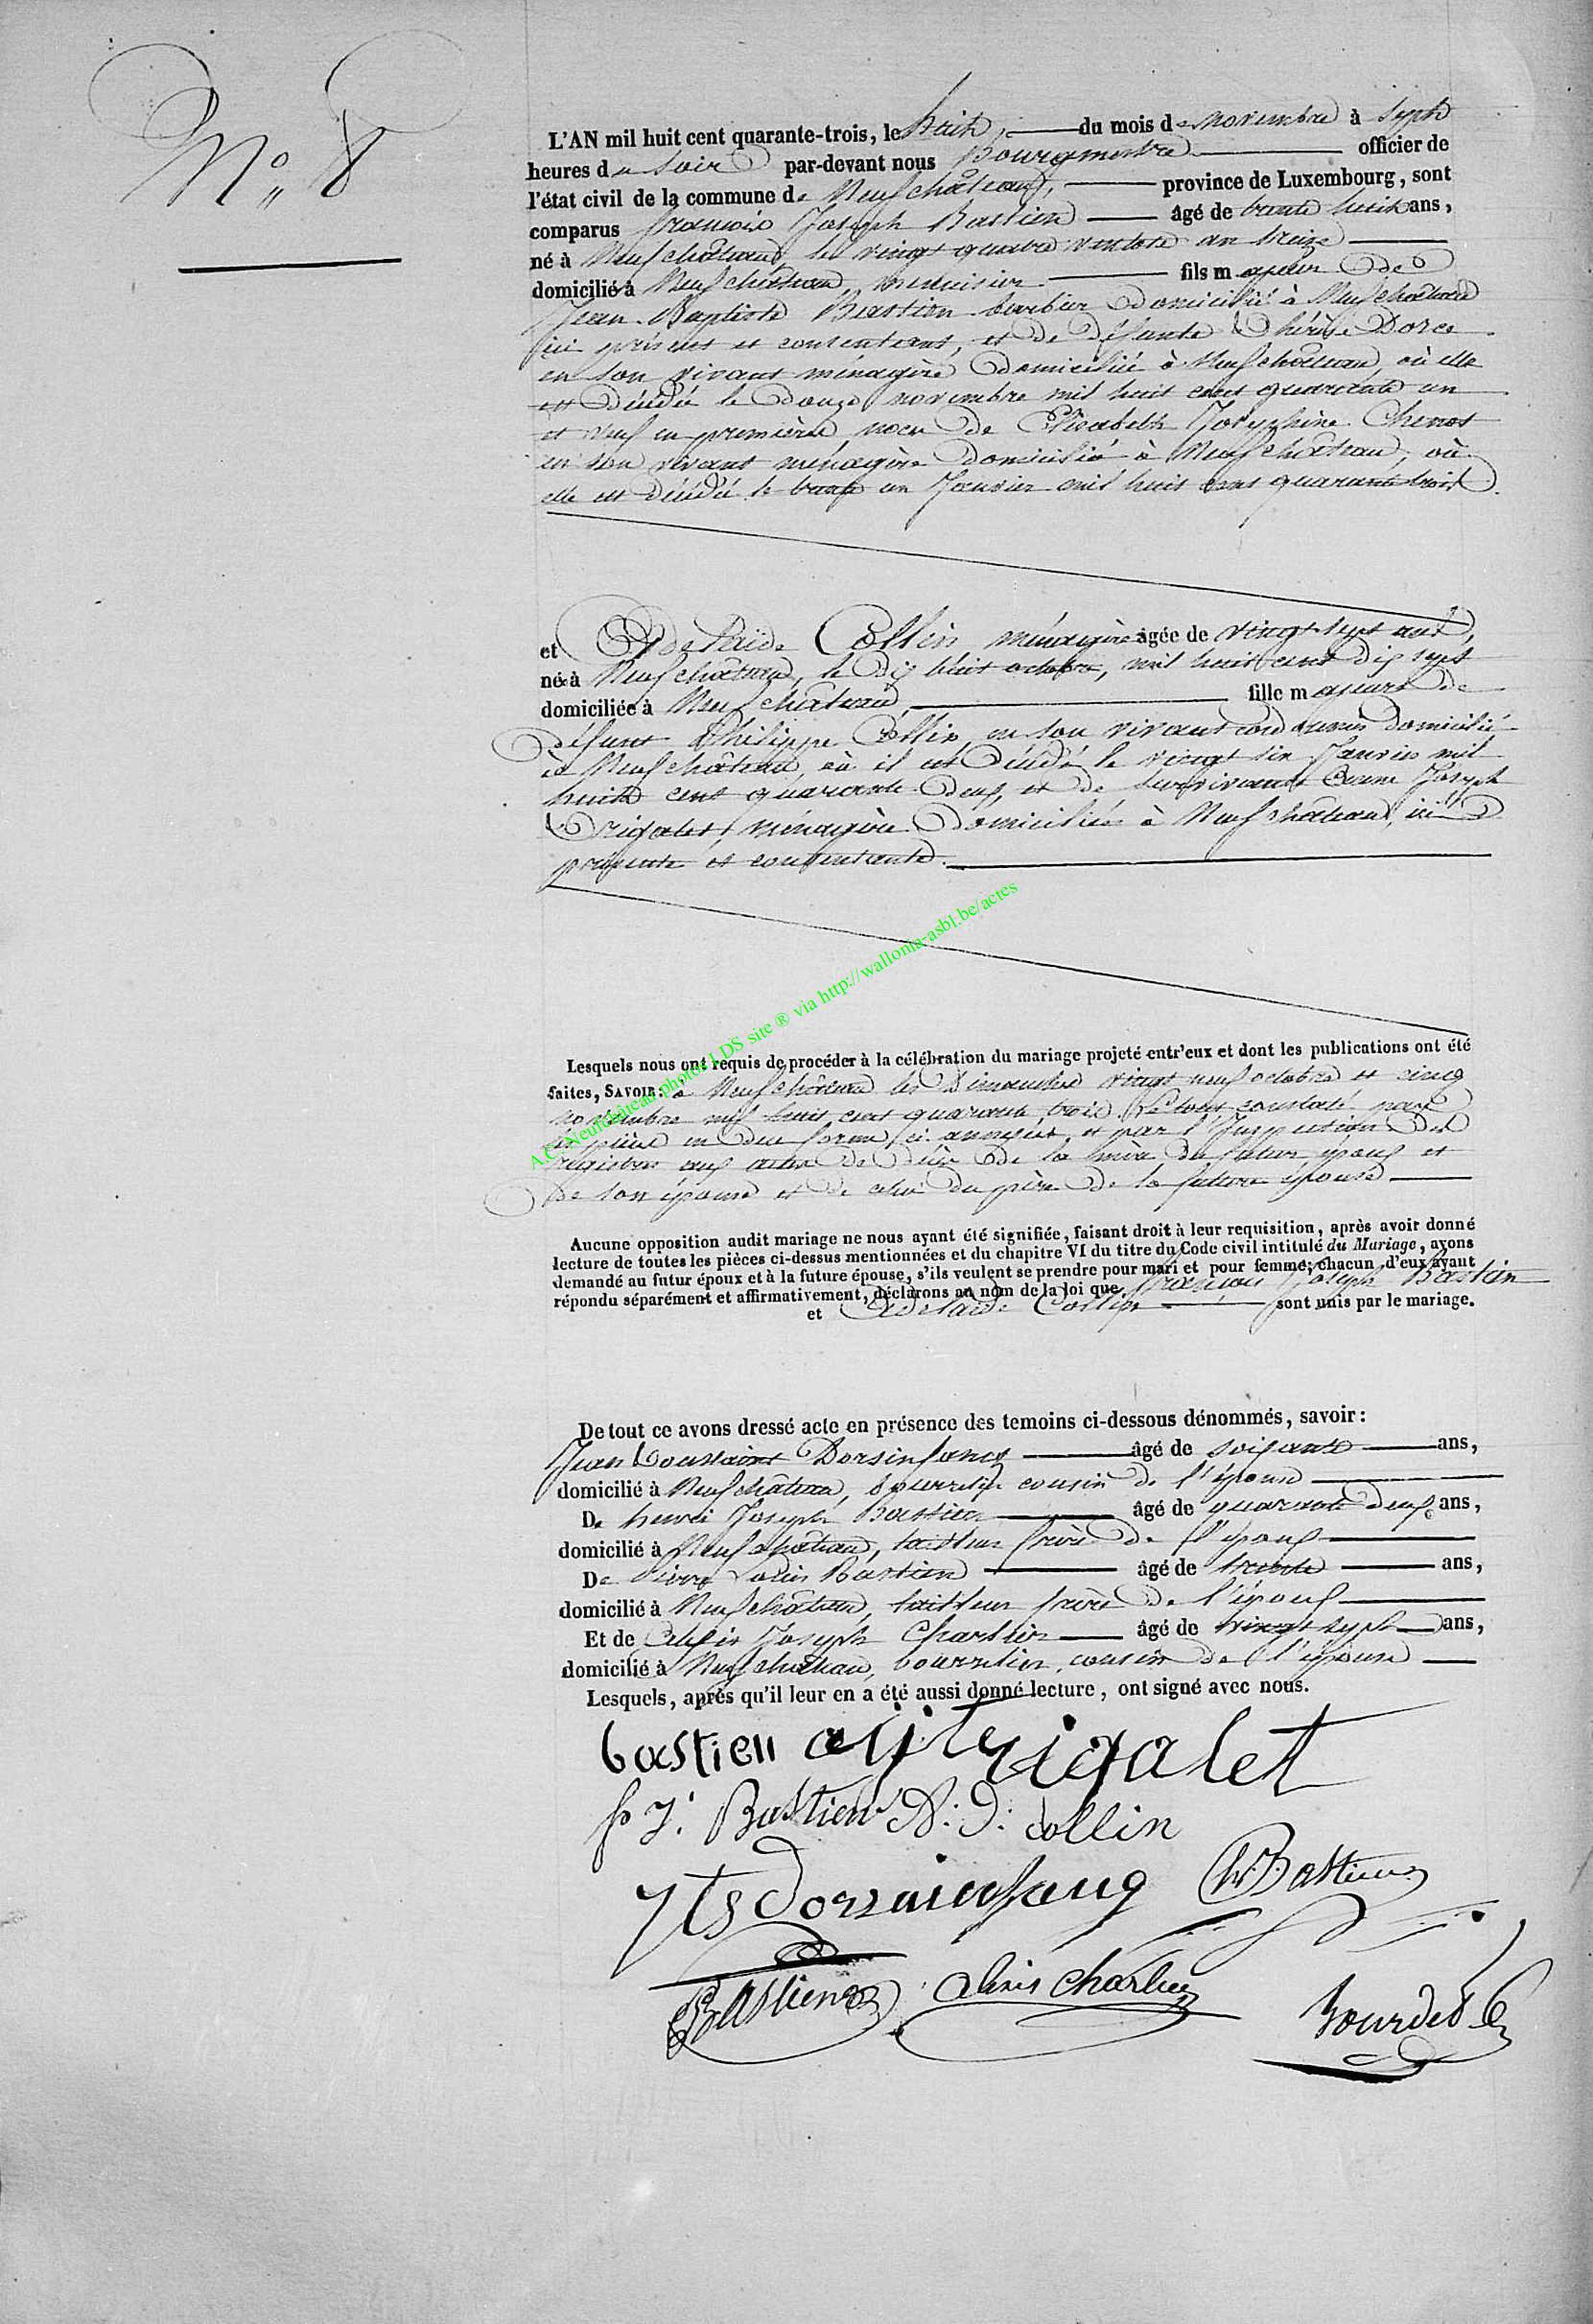 N° 8
L'AN mil huit cent quarante-trois, le huit du mois de novembre à sept
heures du soir par-devant nous Bourgmestre officier de
l'état civil de la commune de Neufchâteau, province de Luxembourg, sont
comparus françois Joseph Bastien âgé de trente huit ans,
né à Neufchâteau, le vingt quatre ventose an treize
domicilié à Neufchâteau, menuisier fils majeur de
Jean-Baptiste Bastien barbier domicilié à Neufchâteau
ici présent et consentant, et de défunte Thérèse Dorce
en son vivant ménagère domiciliée à Neufchâteau, où elle
est décédée le douze novembre mil huit cent quarante un
et veuf en première noce de Elisabeth Joséphine Chenot
en son vivant ménagère domicilié à Neufchâteau, où
elle est décédée le trente un Janvier mil huit cent quarante trois.
et Adelaïde Collin ménagère âgée de vingt sept ans,
née à Neufchâteau, le dix huit octobre, mil huit cent dix sept
domiciliée à Neufchâteau, fille majeure de
défunt Philippe Collin en son vivant cordonnier domicilié
à Neufchâteau, où il est décédé le vingt six Janvier mil
huit cent quarante deux, et de survivante Anne Joseph
Trigalet, ménagère domiciliée à Neufchâteau, ici
présente et consentante.
Lesquels nous ont requis de procéder à la célébration du mariage projeté entr'eux et dont les publications ont été
faites, SAVOIR: à Neufchâteau les Dimanches vingt neuf octobre et cinq
novembre mil huit cent quarante trois. Le tout constaté par
les pièces en due forme ci annexées, et par l'Inspection des
registres aux actes de décès de la mère du futur époux et
de son épouse et de celui du père de la future épouse
Aucune opposition audit mariage ne nous ayant été signifiée, faisant droit à leur requisition, après avoir donné
lecture de toutes les pièces ci-dessus mentionnées et du chapitre VI du titre du Code civil intitulé du Mariage, avons
demandé au futur époux et à la future épouse, s'ils veulent se prendre pour mari et pour femme; chacun d'eux ayant
répondu séparément et affirmativement, déclarons au nom de la loi que françois Joseph Bastien
et Adelaïde Collin sont unis par le mariage.
De tout ce avons dressé acte en présence des temoins ci-dessous dénommés, savoir:
Jean Toussaint Dorsinfang âgé de soixante ans,
domicilié à Neufchâteau, bourrelier cousin de l'épouse
De henri Joseph Bastien âgé de quarante deux ans,
domicilié à Neufchâteau, tailleur frère de l'époux
De Pierre Louis Bastien âgé de trente ans,
domicilié à Neufchâteau, tailleur frère de l'époux
Et de Alexis Joseph Charlier âgé de vingt sept ans,
domicilié à Neufchâteau, bourrelier, cousin de l'épouse
Lesquels, après qu'il leur en a été aussi donné lecture, ont signé avec nous.
bastien trigalet
f J. Bastien A: D: Collin
JTs Dorzainfang h.J. Bastien
Bastien alexis charlier
A.C. Neufchâteau photos LDS site ® via http://wallonia-asbl.be/actes